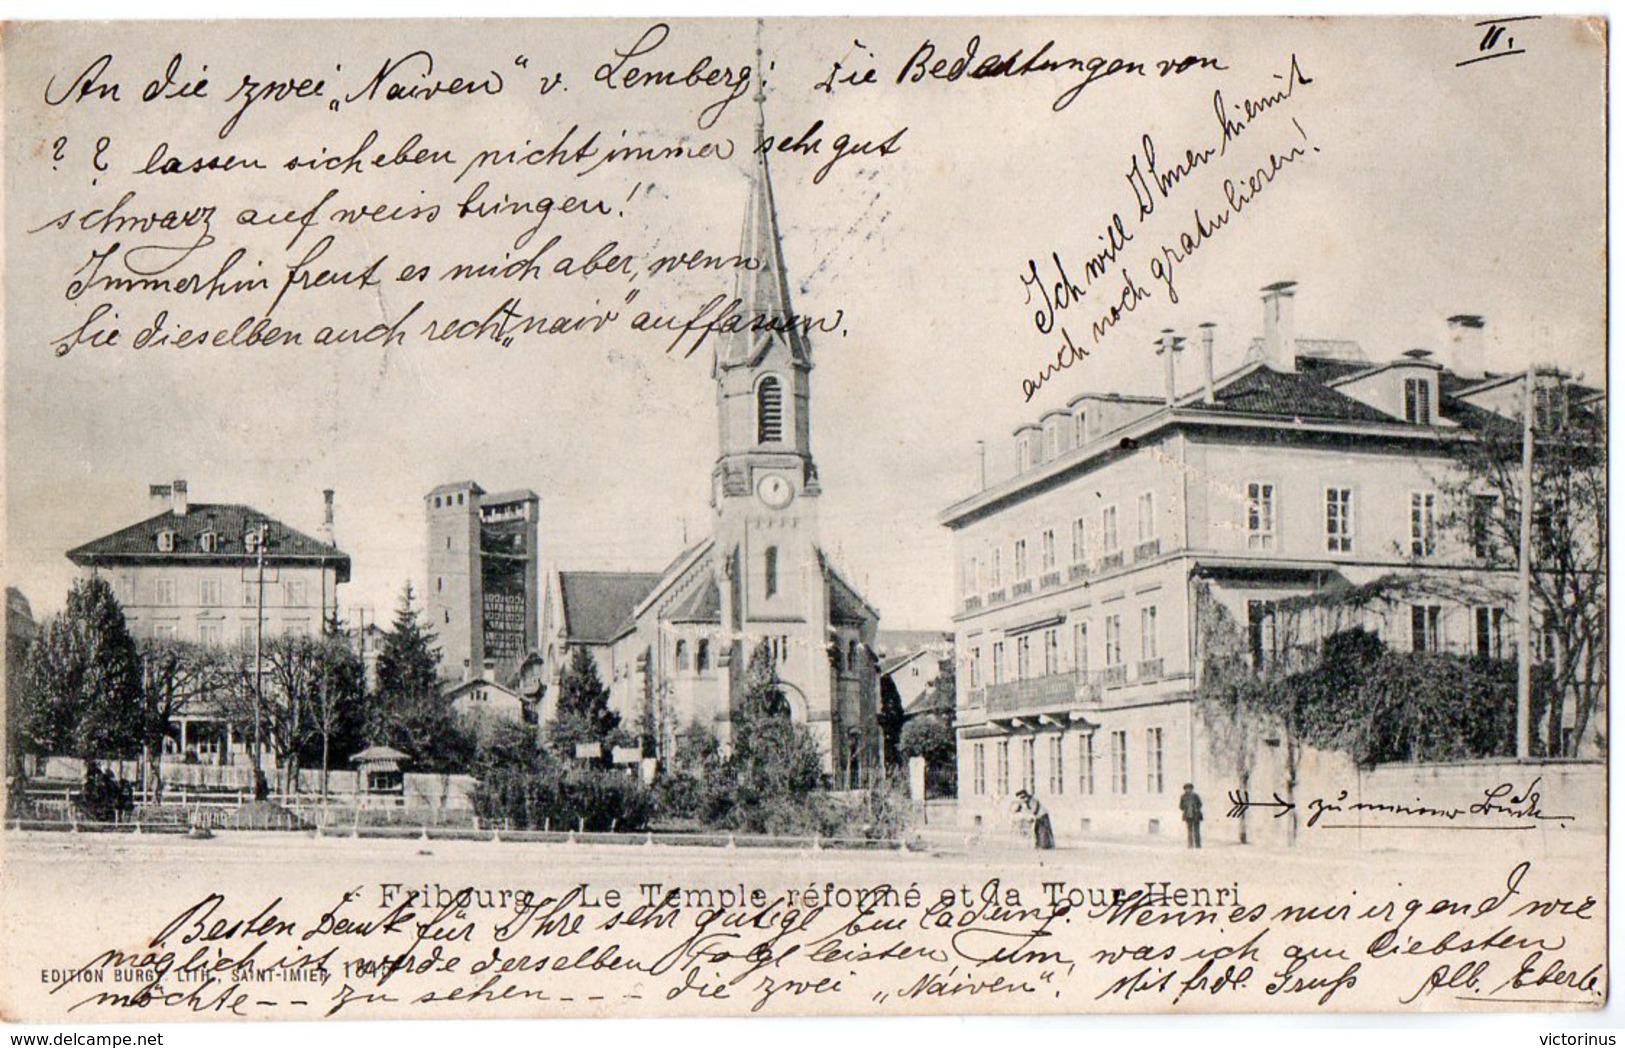 II.
An die zwei „Naiven“ v. Lemberg! Die Bedeutungen von
? ? lassen sich eben nicht immer sehr gut
schwarz auf weiss bringen!
Immerhin freut es mich aber, wenn
Sie dieselben auch recht „naiv“ auffassen.
Ich will Ihnen hiemit
auch noch gratulieren!
zu meiner Bude.
Fribourg. Le Temple réformé et la Tour Henri
Besten Dank für Ihre sehr gütige Einladung. Wenn es mir irgend wie
möglich ist, werde derselben Folge leisten, um, was ich am liebsten
EDITION BURGY LITH., SAINT-IMIER 1645
möchte -- zu sehen --- die zwei „Naiven“! Mit frdl. Gruß Alb. Eberle.
victorinus
delcampe.net